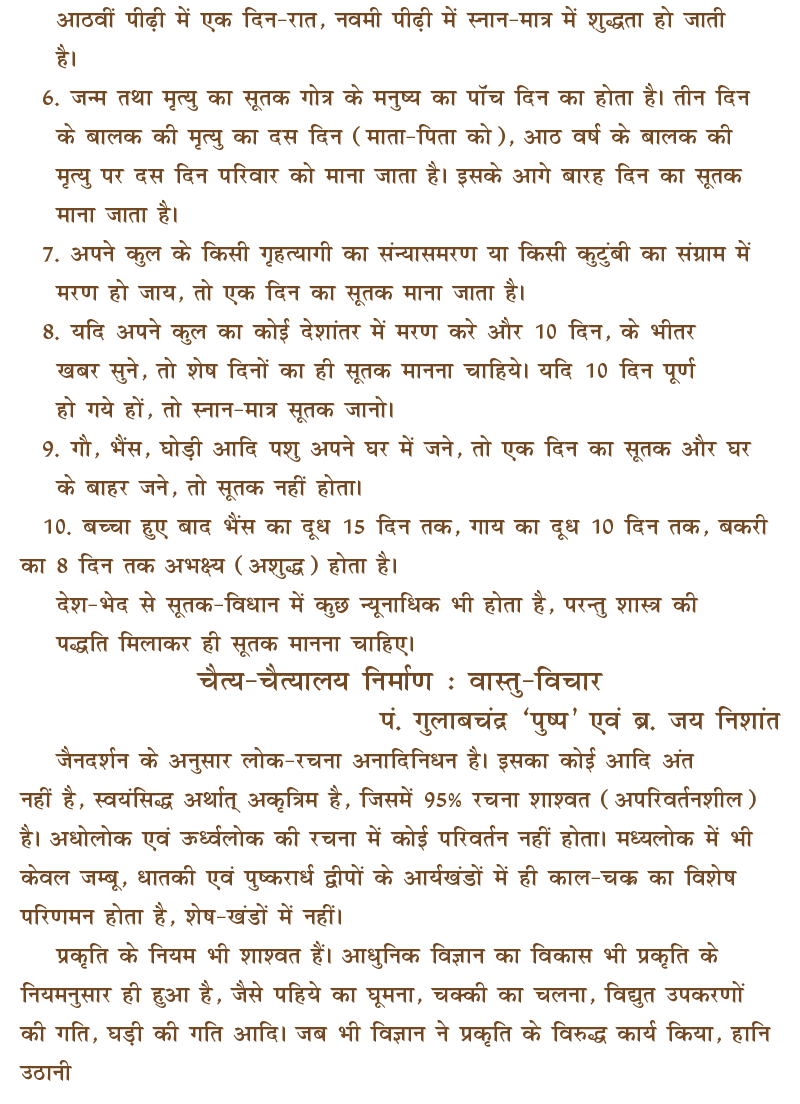 आठवीं पीढ़ी में एक दिन-रात, नवमी पीढ़ी में स्नान-मात्र में शुद्धता हो जाती
है।
6. जन्म तथा मृत्यु का सूतक गोत्र के मनुष्य का पॉंच दिन का होता है। तीन दिन
के बालक की मृत्यु का दस दिन (माता-पिता को), आठ वर्ष के बालक की
मृत्यु पर दस दिन परिवार को माना जाता है। इसके आगे बारह दिन का सूतक
माना जाता है।
7. अपने कुल के किसी गृहत्यागी का संन्यासमरण या किसी कुटुंबी का संग्राम में
मरण हो जाय, तो एक दिन का सूतक माना जाता है।
8. यदि अपने कुल का कोई देशांतर में मरण करे और 10 दिन, के भीतर
खबर सुने, तो शेष दिनों का ही सूतक मानना चाहिये। यदि 10 दिन पूर्ण
हो गये हों, तो स्नान-मात्र सूतक जानो।
9. गौ, भैंस, घोड़ी आदि पशु अपने घर में जने, तो एक दिन का सूतक और घर
के बाहर जने, तो सूतक नहीं होता।
10. बच्चा हुए बाद भैंस का दूध 15 दिन तक, गाय का दूध 10 दिन तक, बकरी
का 8 दिन तक अभक्ष्य (अशुद्ध) होता है।
देश-भेद से सूतक-विधान में कुछ न्यूनाधिक भी होता है, परन्तु शास्त्र की
पद्धति मिलाकर ही सूतक मानना चाहिए।
चैत्य-चैत्यालय निर्माण : वास्तु-विचार
पं. गुलाबचंद्र ‘पुष्प’ एवं ब्र. जय निशांत
जैनदर्शन के अनुसार लोक-रचना अनादिनिधन है। इसका कोई आदि अंत
नहीं है, स्वयंसिद्ध अर्थात् अकृत्रिम है, जिसमें 95% रचना शाश्वत (अपरिवर्तनशील)
है। अधोलोक एवं ऊर्ध्वलोक की रचना में कोई परिवर्तन नहीं होता। मध्यलोक में भी
केवल जम्बू, धातकी एवं पुष्करार्ध द्वीपों के आर्यखंडों में ही काल-चक्र का विशेष
परिणमन होता है, शेष-खंडों में नहीं।
प्रकृति के नियम भी शाश्वत हैं। आधुनिक विज्ञान का विकास भी प्रकृति के
नियमनुसार ही हुआ है, जैसे पहिये का घूमना, चक्की का चलना, विद्युत उपकरणों
की गति, घड़ी की गति आदि। जब भी विज्ञान ने प्रकृति के विरुद्ध कार्य किया, हानि
उठानी